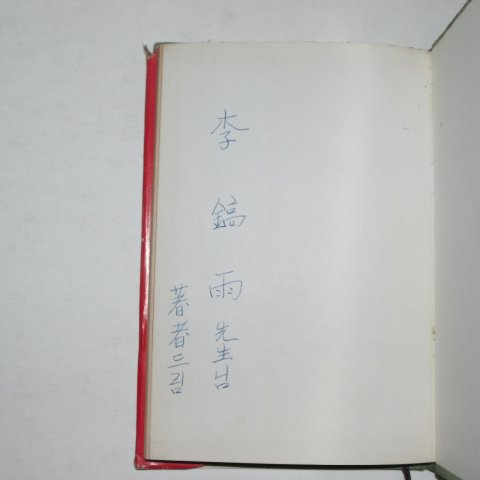 李鎬雨先生님
著者드림